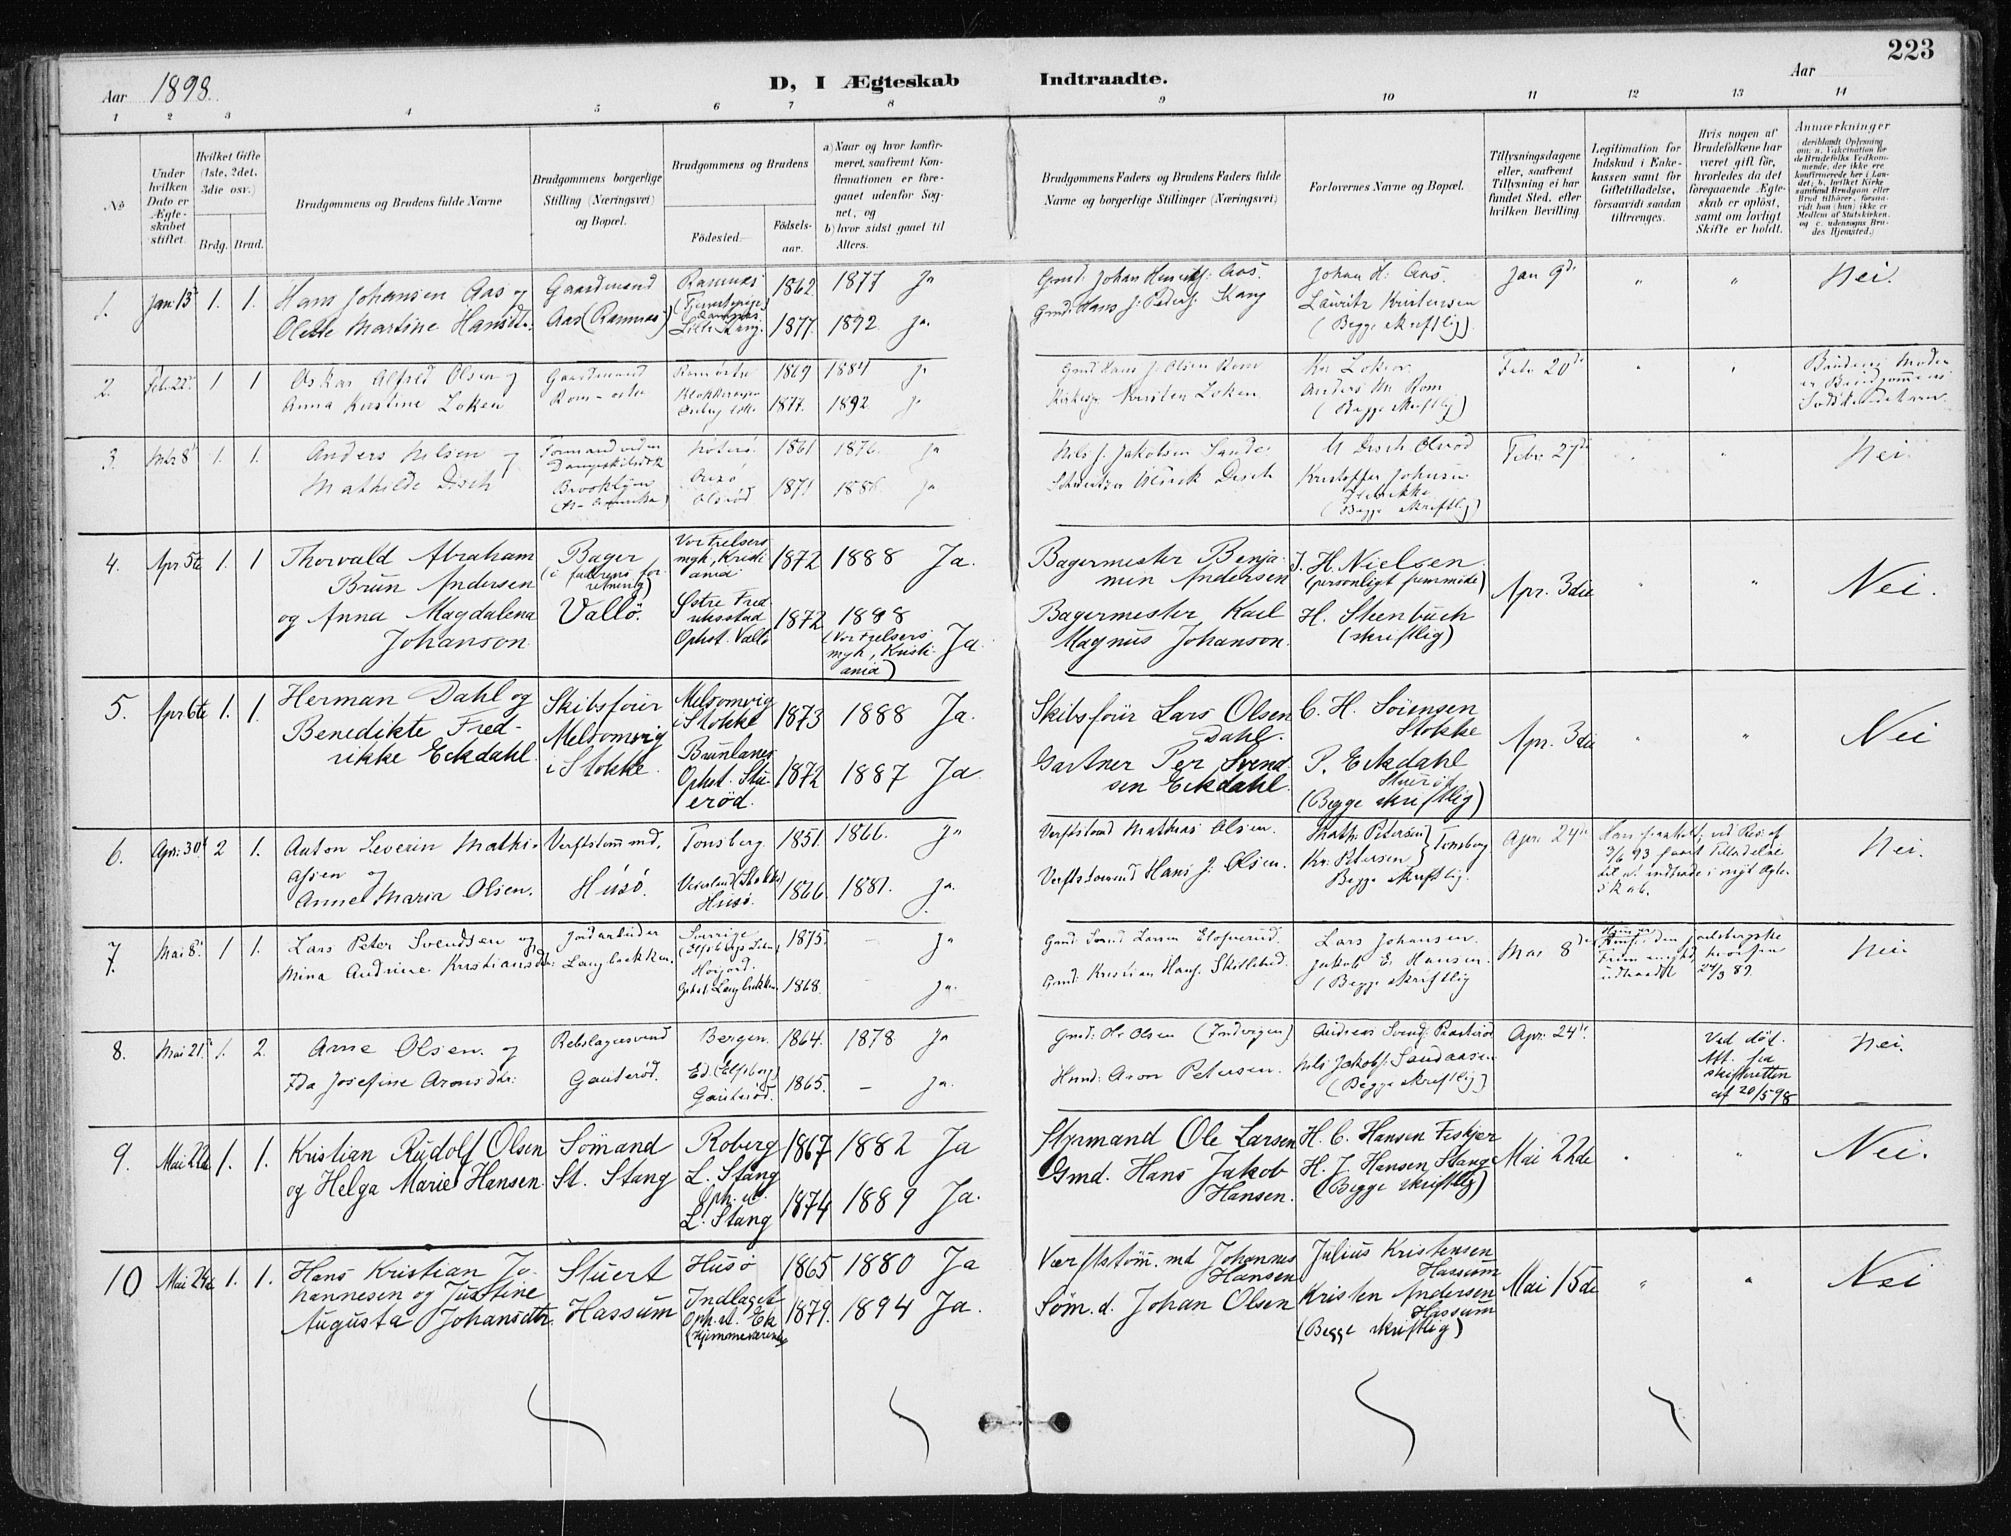 223
Aar 1898. D, I Ægteskab Indtraadte. Aar
1 2 3 4 5 6 7 8 9 10 11 12 13 14
No
Under hvilken Dato er Ægteskabet stiftet.
Hvilket Gifte (1ste, 2det, 3die osv.)
Brdg. Brud.
Brudgommens og Brudens fulde Navne
Brudgommens borgerlige Stilling (Næringsvei) og Bopæl.
Brudgommens og Brudens
Fødested.
Fødselsaar.
a) Naar og hvor konfirmeret, saafremt Konfirmationen er foregaaet udenfor Sognet, og
b) hvor sidst gaaet til Alters.
Brudgommens Faders og Brudens Faders fulde Navne og borgerlige Stillinger (Næringsvei)
Forlovernes Navne og Bopæl.
Tillysningsdagene eller, saafremt Tillysning ei har fundet Sted, efter hvilken Bevilling.
Legitimation for Indskud i Enkekassen samt for Giftetilladelse, forsaavidt saadan tiltrænges.
Hvis nogen af Brudefolkene har været gift før, hvorledes da det foregaaende Ægteskab er opløst, samt om lovligt Skifte er holdt.
Anmærkninger (deriblandt Oplysning om: a. Vakcination for de Brudefolks Vedkommende, der ikke ere konfirmerede her i Landet; b. hvilket Kirkesamfund Brudgom eller Brud tilhører, forsaavidt han (hun) ikke er Medlem af Statskirken, og c. udensogns Brudes Hjemsted.)
1. Jan. 13 1. 1. Hans Johansen Aas og
Olette Martine Hansdtr.
Gaardmand
Aas (Ramnæs)
Ramnæs 1862 1877 Ja
Lille Stang. 1877. 1892 Ja.
Gmd. Johan Henrik Aas.
Gmd. Hans J. Peders. Stang
Johan H. Aas.
Lauritz Kristensen
(Begge skriftlig)
Jan 9de " " Nei.
2. Feb. 22 1 1 Oskar Alfred Olsen og
Anna Kirstine Løken
Gaardmand
Rom - østre
1869 1884 Ja
1877. 1892. Ja
Gmd Hans J. Olsen Rom
Kristen Løken
Anders M. Rom
(Begge skriftlig)
Febr 20de
3. 1. 1. Anders Nilsen og
Mathilde Disch
Formand ved en
Brooklyn
Nøterø. 1861 1876. Ja
Olsrød 1871 1886 Ja
Nils J. Jakobsen Sande.
Ulrick Disch
U Disch Olsrød
Kristoffer Johnsen
(Begge skriftlig)
Febr 27de Nei.
4. Apr 5te 1. 1 Thorvald Abraham
Brun Andersen
og Anna Magdalena
Johanson
Bager
(i faderens forretning)
Vallö.
Vor Frelsers
mgh, Kristiania 1872 1888 Ja.
Østre Fredriksstad
Ophst. Vallö 1872 1888
(Vor Frelsers
mgh, Kristiania) Ja
Bagermester Benjamin Andersen
Bagermester Karl
Magnus Johanson.
J. H. Nielsen
(personligt fremmøde)
H. Steenbuch
(skriftlig)
Apr. 3die " " Nei.
5. Apr 6te 1. 1. Herman Dahl og
Benedikte Fredrikke Eckdahl.
Skibsförer
Melsomvig
i Stokke.
Melsomvig
i Stokke 1873 1888 Ja.
Brunlanes
Ophst. Stuerød. 1872 1887 Ja
Skibsförer Lars Olsen
Dahl.
Gartner Per Svendsen Eckdahl.
C. H. Sörensen
Stokke
P. Eckdahl
Stuerød
(Begge skriftlig)
Apr. 3die " " Nei
6. Apr. 30 2 1. Anton Severin Mathiasen og
Anne Maria Olsen.
Verftstømmd,
Husö.
Tønsberg. 1851. 1866. Ja
(Stokke)
Husö. 1866. 1881. Ja.
Mathias Olsen.
Hans J. Olsen.
Math. Petersen
Kr. Petersen } Tønsberg
Begge skriftlig.
Apr. 24de Nei.
7. Mai 8 1 1. Lars Peter Svendsen og
Mina Andrine Kristiansdtr.
Jordarbeider
Langbakken.
Sverrige 1875. - Ja
Langbakken. 1868. - Ja.
Gmd. Svend Larsen
Gmd. Kristian Hans.
Lars Johansen.
Jakob E. Hansen.
(Begge skriftlig
Mai 8de
24/3 89. Nei
8. Mai 21 1. 2. Arne Olsen og
Ida Josefine Aronsdtr.
Rebslagersvend
Gauterød.
Bergen. 1864. 1878 Ja
Ed. (Elfsborg)
Gauterød. 1865. - Ja.
Gmd: Olsen
Husmd: Aron Petersen.
Nils Jakobs. Sandaasen
(Begge skriftlig)
Apr. 24de
Ved død.
Att. fra
skifteretten
af 20/5 98 Nei.
9. Mai 22de 1. 1. Kristian Rudolf Olsen
og Helga Marie Hansen.
Sömand
St. Stang
Roberg 1867 1882 Ja
L. Stang
Oph. st.
L. Stang 1874 1889 Ja.
Styrmand Ole Larsen
Gmd. Hans Jakob
Hansen.
H. C. Hansen Feskjer
H. J. Hansen Stang
(Begge skriftlig)
Mai 22de " " Nei.
10 Mai 29de 1. 1. Hans Kristian Johannesen og Justine
Augusta Johansdtr.
Stuert
Hassum
Husö 1865 1880 Ja
Indlaget
Oph. st. Ek
(Hjemmeværende) 1879. 1894 Ja.
Værftstöm. md Johannes
Hansen
Söm. d. Johan Olsen
Julius Kristensen
Hassum
Kristen Andersen
Hassum
(Begge skriftlig)
Mai 15de " " Nei